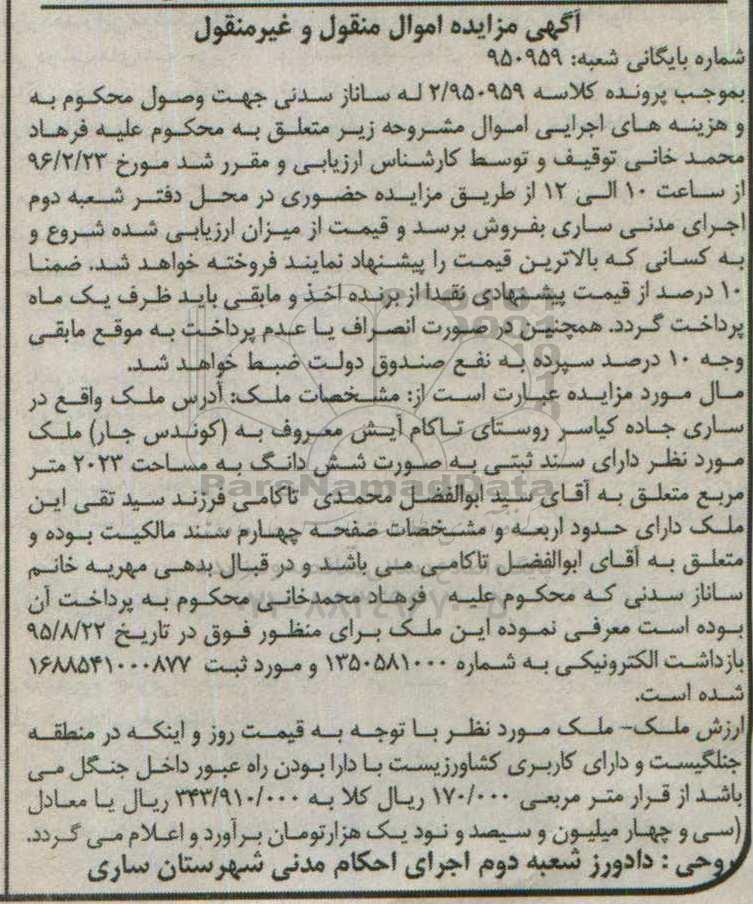 آگهی مزایده اموال منقول و غیرمنقول
شماره بایگانی شعبه: ۹۵۰۹۵۹
بموجب پرونده کلاسه ۲/۹۵۰۹۵۹ له ساناز سدنی جهت وصول محکوم به
و هزینه های اجرایی اموال مشروحه زیر متعلق به محکوم علیه فرهاد
محمد خانی توقیف و توسط کارشناس ارزیابی و مقرر شد مورخ ۹۶/۲/۲۳
از ساعت ۱۰ الی ۱۲ از طریق مزایده حضوری در محل دفتر شعبه دوم
اجرای مدنی ساری بفروش برسد و قیمت از میزان ارزیابی شده شروع و
به کسانی که بالاترین قیمت را پیشنهاد نمایند فروخته خواهد شد. ضمنا
۱۰ درصد از قیمت پیشنهادی نقدا از برنده اخذ و مابقی باید ظرف یک ماه
پرداخت گردد. همچنین در صورت انصراف یا عدم پرداخت به موقع مابقی
وجه ۱۰ درصد سپرده به نفع صندوق دولت ضبط خواهد شد.
مال مورد مزایده عبارت است از: مشخصات ملک: آدرس ملک واقع در
ساری جاده کیاسر روستای تاکام آیش معروف به (کوندس جار) ملک
مورد نظر دارای سند ثبتی به صورت شش دانگ به مساحت ۲۰۲۳ متر
مربع متعلق به آقای سید ابوالفضل محمدی تاکامی فرزند سید تقی این
ملک دارای حدود اربعه و مشخصات صفحه چهارم سند مالکیت بوده و
متعلق به آقای ابوالفضل تاکامی می باشد و در قبال بدهی مهریه خانم
ساناز سدنی که محکوم علیه فرهاد محمدخانی محکوم به پرداخت آن
بوده است معرفی نموده این ملک برای منظور فوق در تاریخ ۹۵/۸/۲۲
بازداشت الکترونیکی به شماره ۱۳۵۰۵۸۱۰۰۰ و مورد ثبت ۱۶۸۸۵۴۱۰۰۰۸۷۷
شده است.
ارزش ملک- ملک مورد نظر با توجه به قیمت روز و اینکه در منطقه
جنلگیست و دارای کاربری کشاورزیست با دارا بودن راه عبور داخل جنگل می
باشد از قرار متر مربعی ۱۷۰/۰۰۰ ریال کلا به ۳۴۳/۹۱۰/۰۰۰ ریال یا معادل
(سی و چهار میلیون و سیصد و نود یک هزارتومان برآورد و اعلام می گردد.
روحی : دادورز شعبه دوم اجرای احکام مدنی شهرستان ساری
ParsNamadData